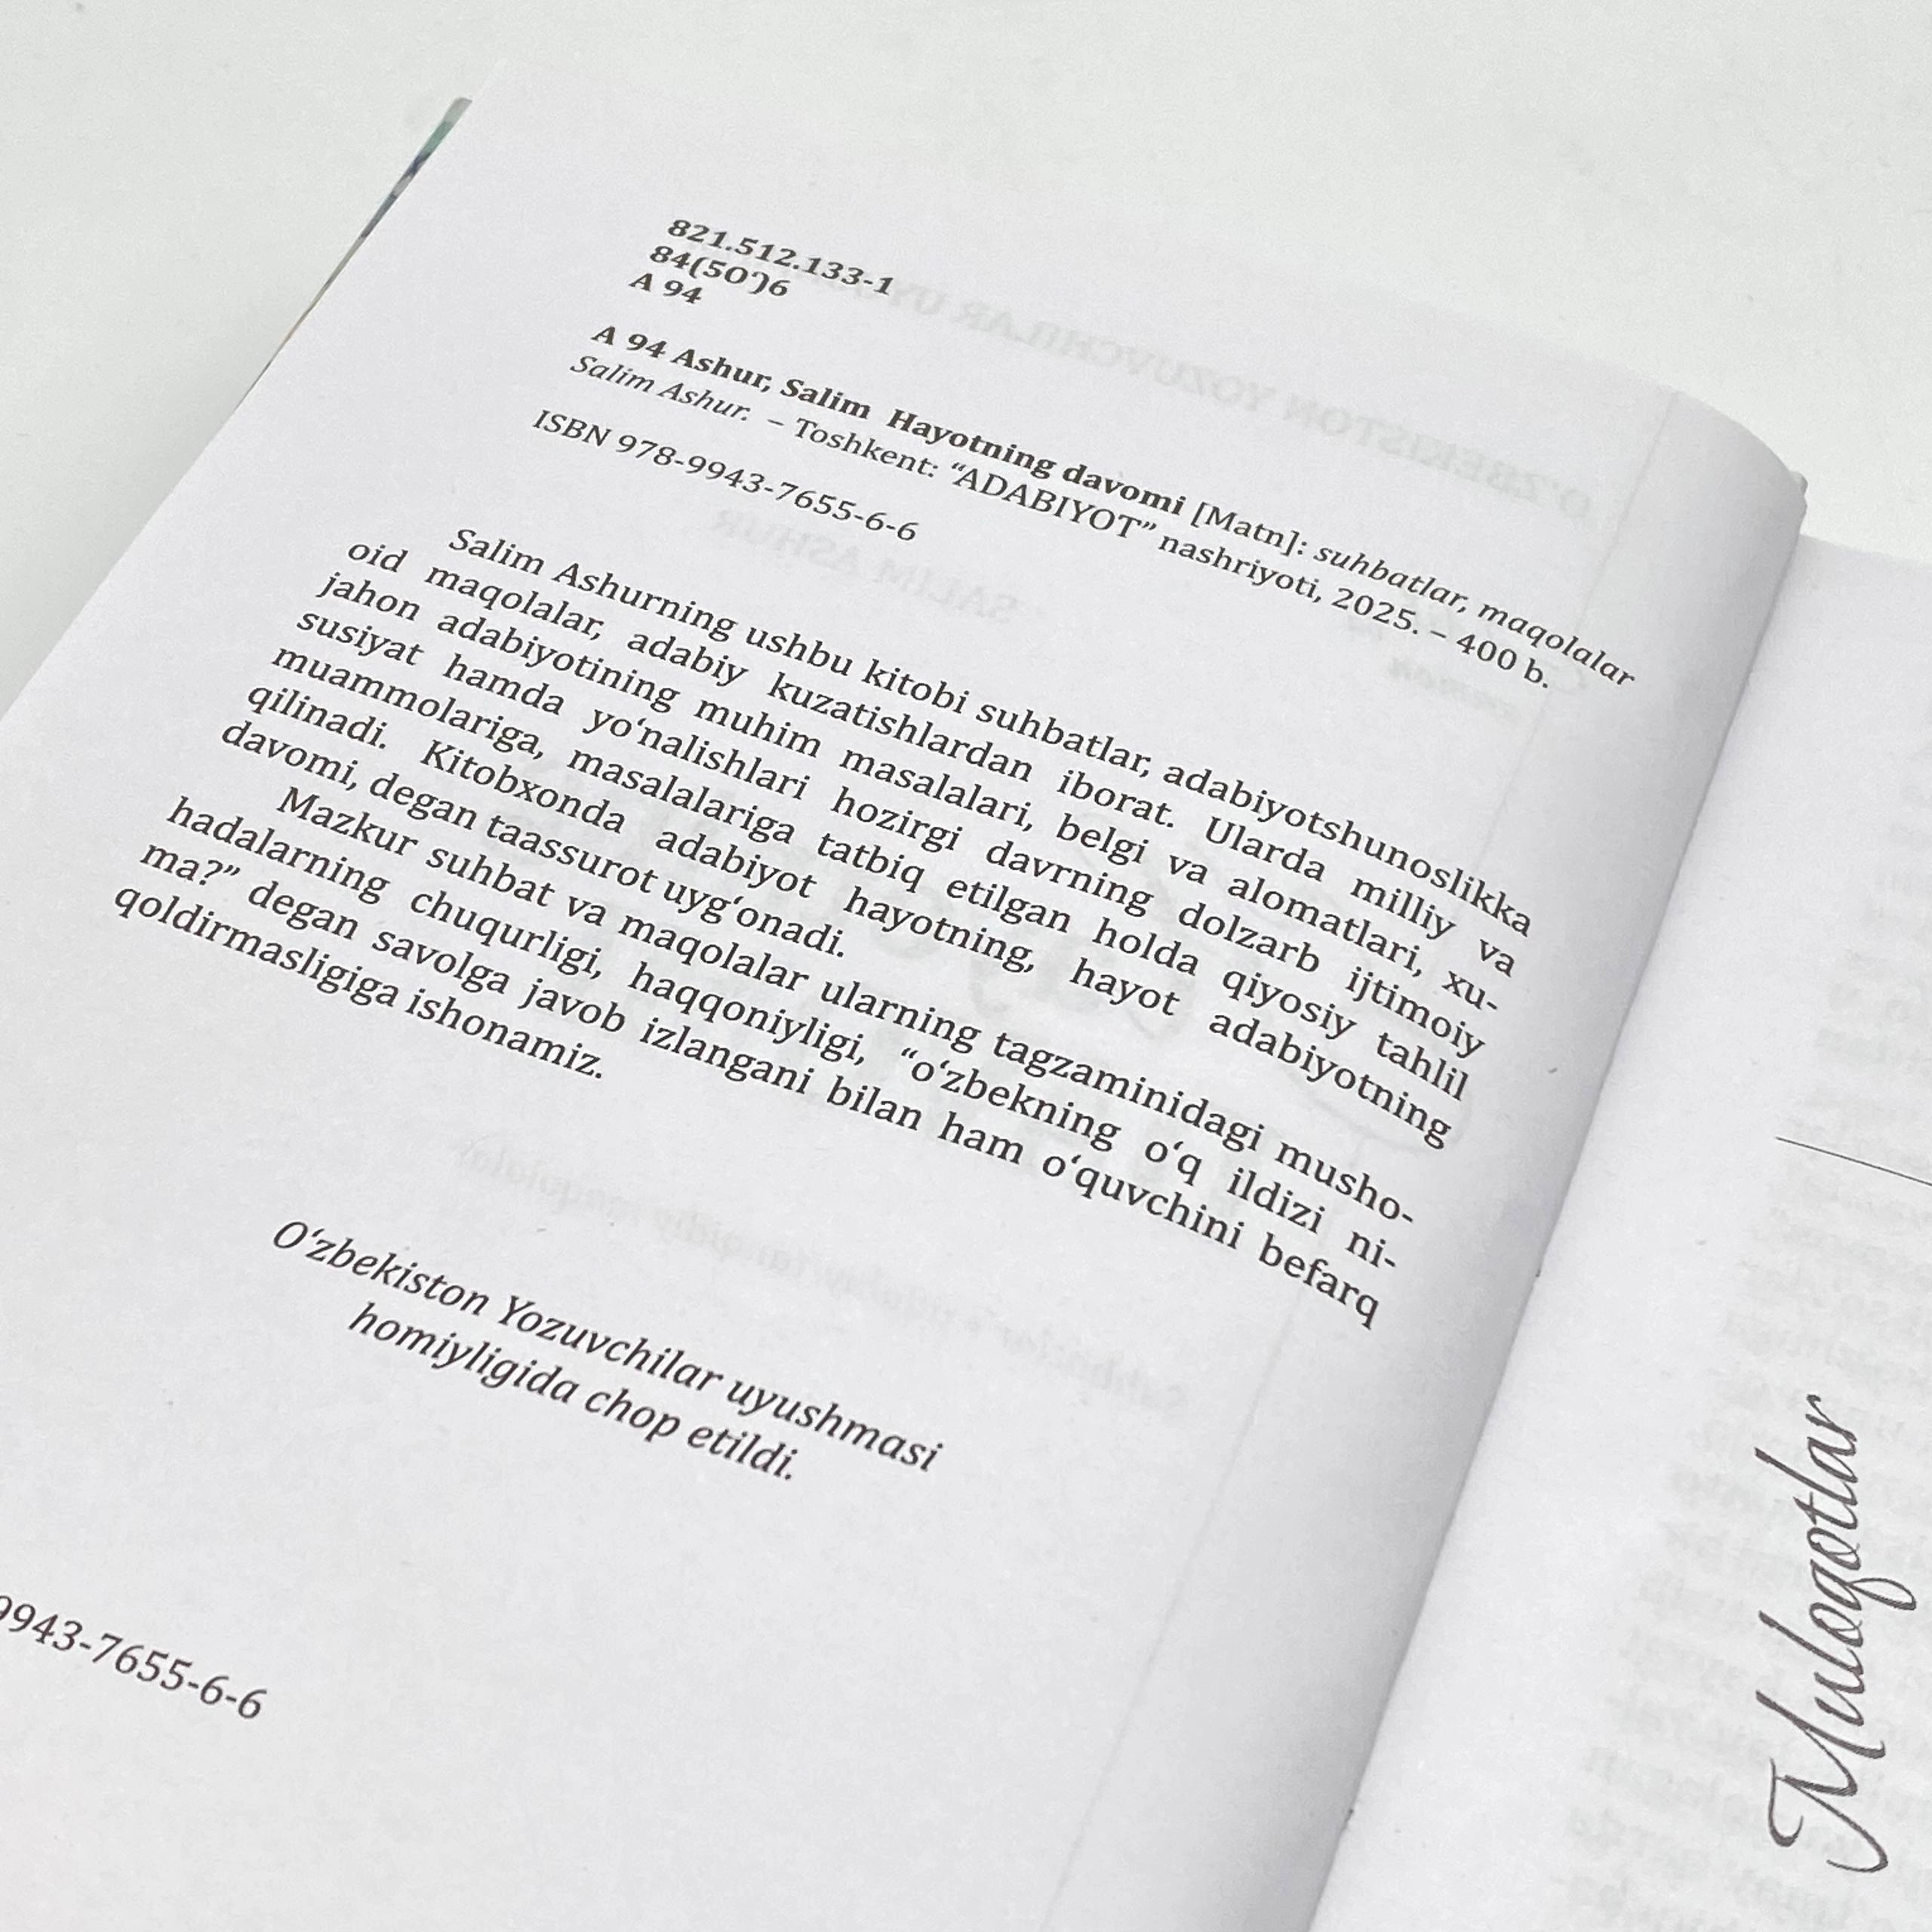 821.512.133-1
84(5Oʻ)6
A 94
A 94 Ashur, Salim Hayotning davomi [Matn]: suhbatlar, maqolalar
Salim Ashur. – Toshkent: “ADABIYOT” nashriyoti, 2025. – 400 b.
ISBN 978-9943-7655-6-6
Salim Ashurning ushbu kitobi suhbatlar, adabiyotshunoslikka
oid maqolalar, adabiy kuzatishlardan iborat. Ularda milliy va
jahon adabiyotining muhim masalalari, belgi va alomatlari, xu-
susiyat hamda yoʻnalishlari hozirgi davrning dolzarb ijtimoiy
muammolariga, masalalariga tatbiq etilgan holda qiyosiy tahlil
qilinadi. Kitobxonda adabiyot hayotning, hayot adabiyotning
davomi, degan taassurot uygʻonadi.
Mazkur suhbat va maqolalar ularning tagzaminidagi musho-
hadalarning chuqurligi, haqqoniyligi, “oʻzbekning oʻq ildizi ni-
ma?” degan savolga javob izlangani bilan ham oʻquvchini befarq
qoldirmasligiga ishonamiz.
Oʻzbekiston Yozuvchilar uyushmasi
homiyligida chop etildi.
9943-7655-6-6
Muloqotlar